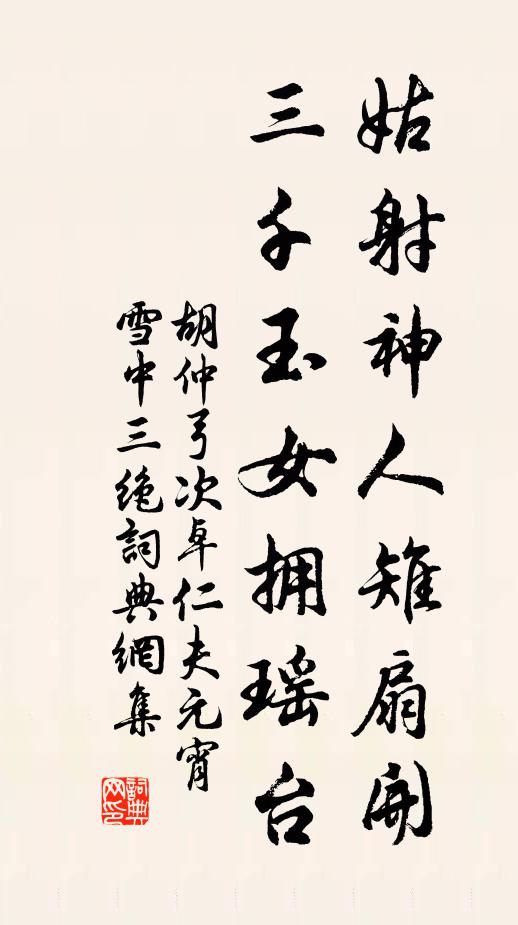 姑射神人雉扇開
三千玉女拥瑶台
胡仲弓次卓仁夫元宵
雪中三绝詞典網集
詞典网印